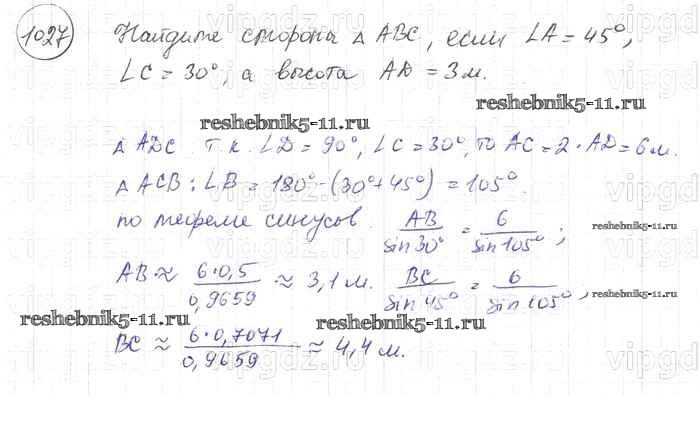 1027 Найдите стороны △ ABC, если ∠A = 45°,
∠C = 30°, а высота AD = 3 м.
reshebnik5-11.ru
reshebnik5-11.ru
△ ADC т.к. ∠D = 90°, ∠C = 30°, то AC = 2 · AD = 6 м.
△ ACB: ∠B = 180° - (30° + 45°) = 105°.
по теореме синусов. AB/sin 30° = 6/sin 105°;
reshebnik5-11.ru
AB ≈ 6·0,5/0,9659 ≈ 3,1 м. BC/sin 45° = 6/sin 105°,
reshebnik5-11.ru
reshebnik5-11.ru
reshebnik5-11.ru
BC ≈ 6·0,7071/0,9659 ≈ 4,4 м.